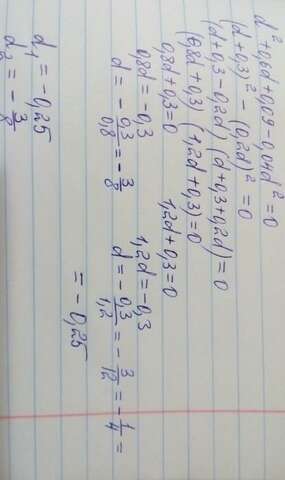 d² + 0,6d + 0,09 - 0,04d² = 0
(d + 0,3)² - (0,2d)² = 0
(d + 0,3 - 0,2d) (d + 0,3 + 0,2d) = 0
(0,8d + 0,3) (1,2d + 0,3) = 0
0,8d + 0,3 = 0 1,2d + 0,3 = 0
0,8d = -0,3 1,2d = -0,3
d = - 0,3/0,8 = - 3/8 d = - 0,3/1,2 = - 3/12 = - 1/4 =
= - 0,25
d₁ = -0,25
d₂ = - 3/8